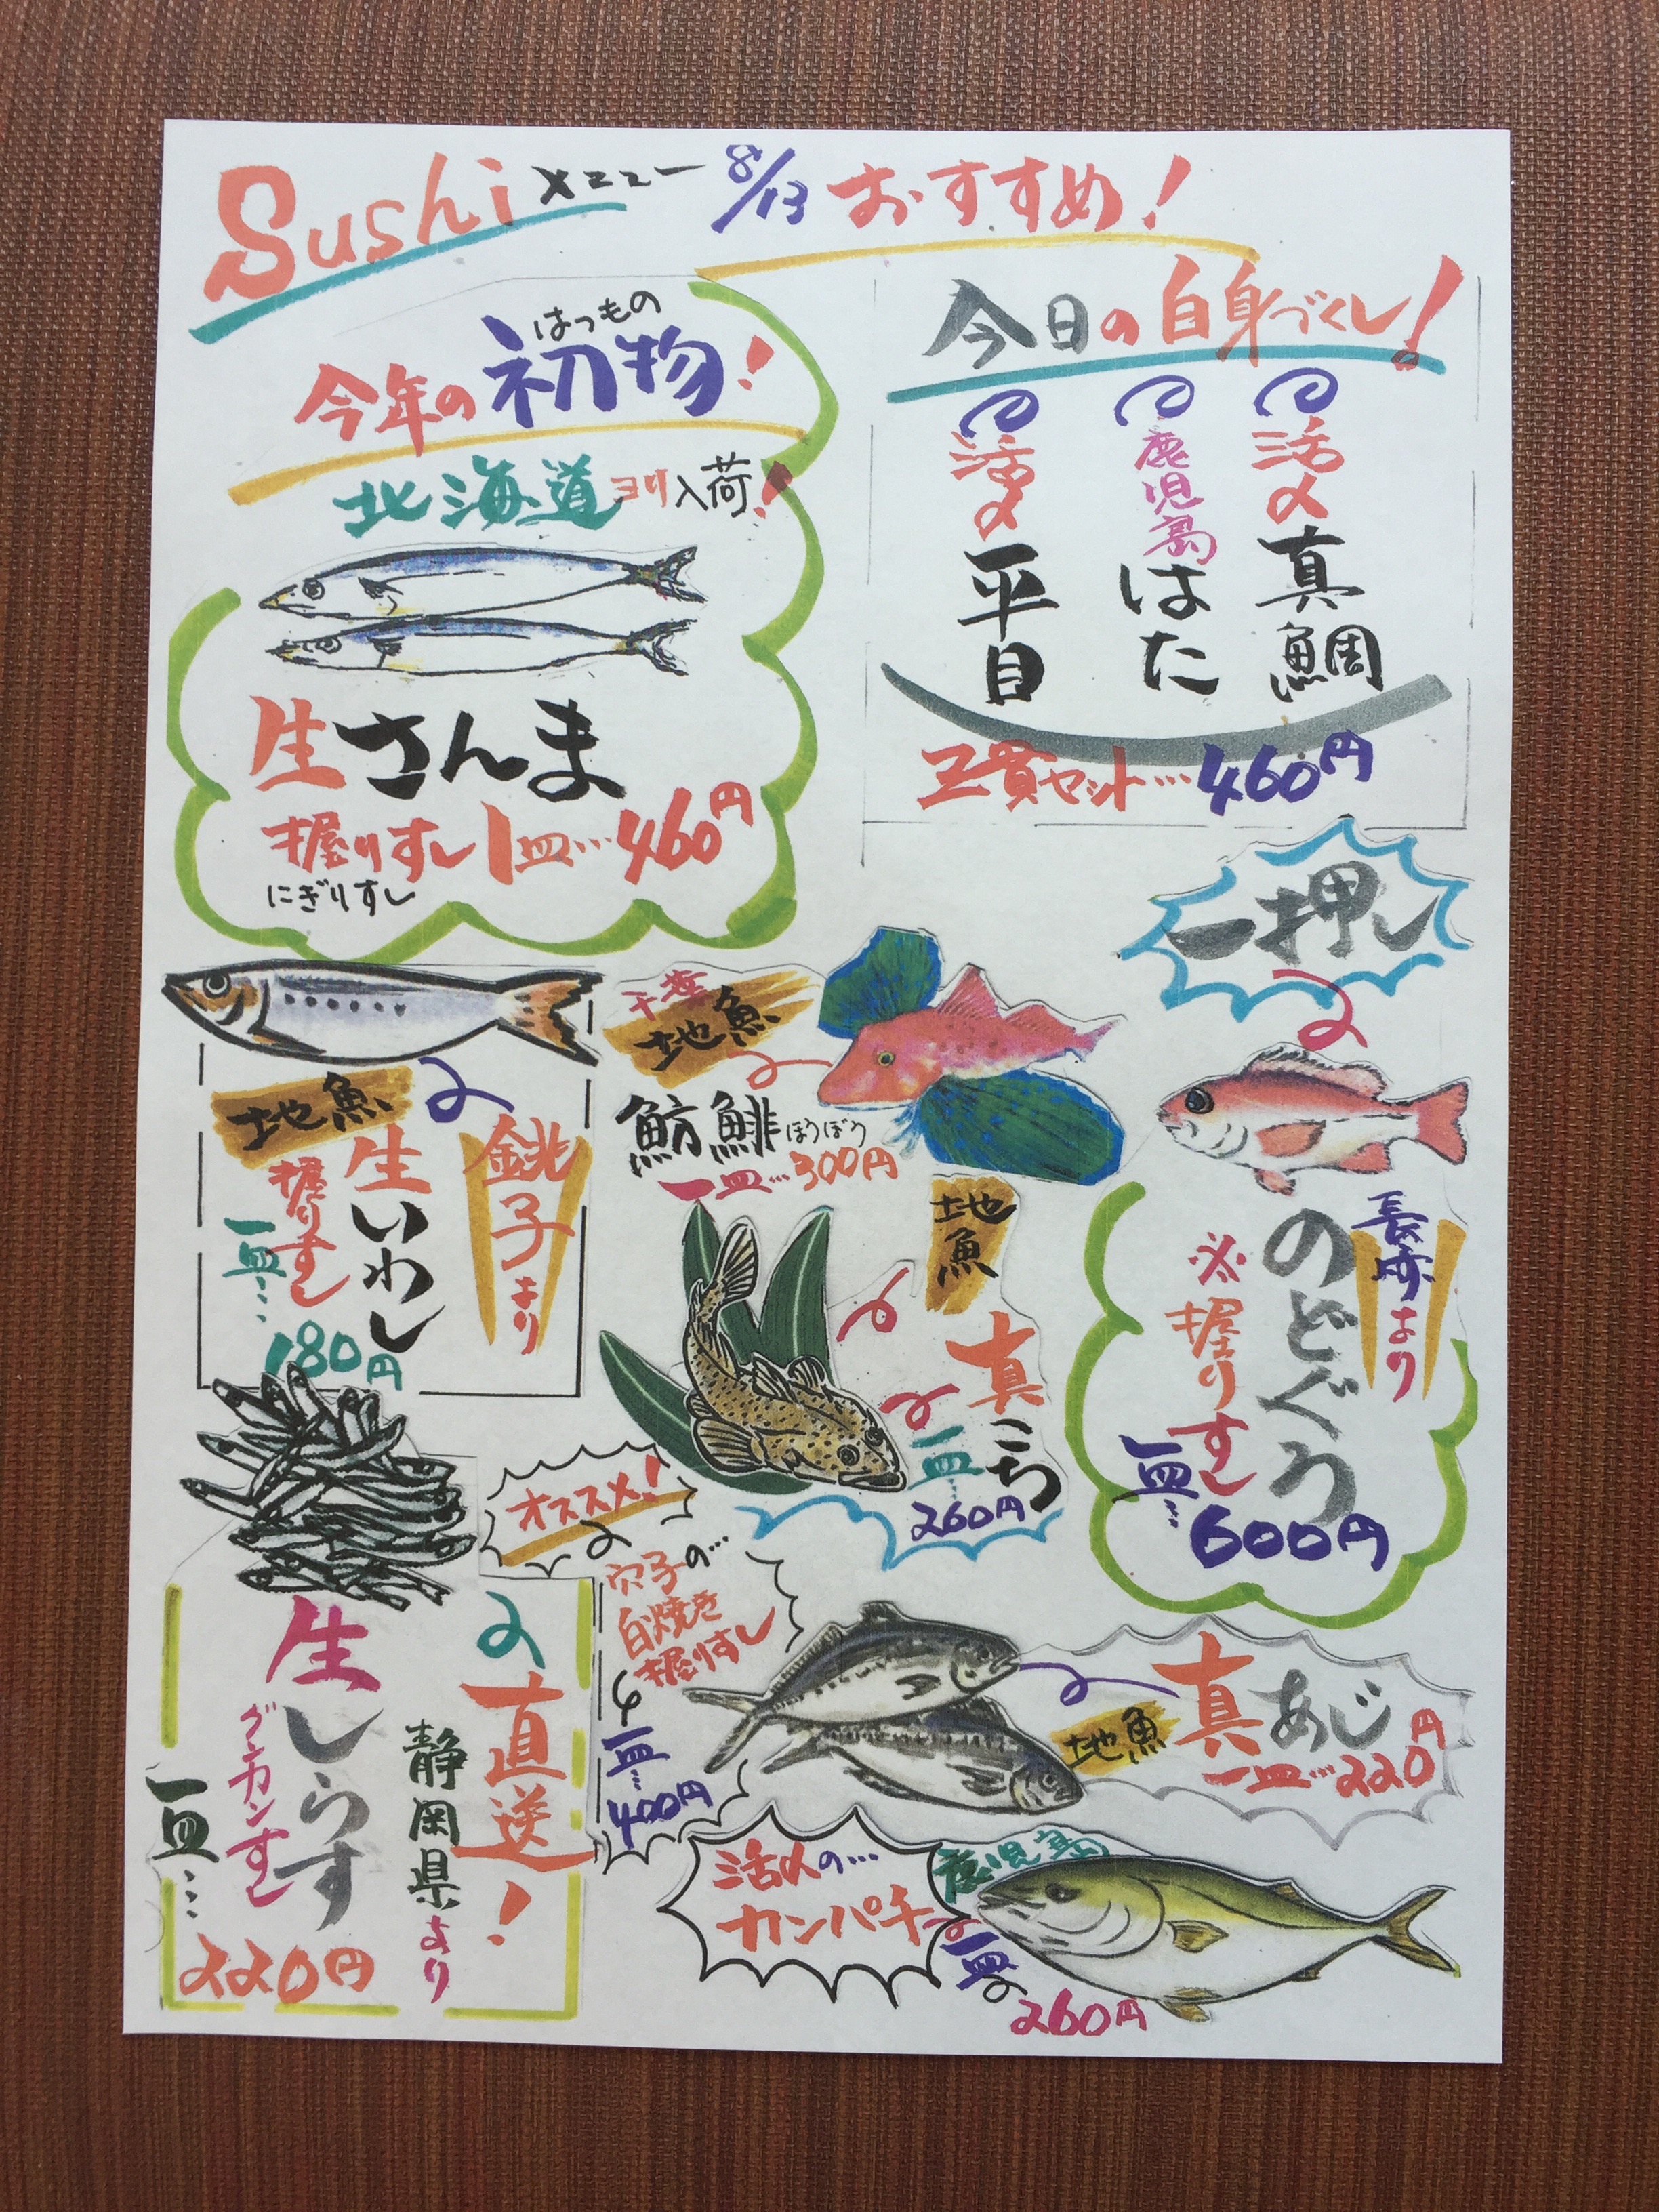 Sushi メニュー 8/13 おすすめ!
はつもの
今年の初物!
北海道ヨリ入荷!
生さんま
握りすし1皿…460円
にぎりすし
今日の白身づくし!
活〆真鯛
鹿児島はた
活〆平目
三貫セット…460円
一押し
長崎より
のどぐろ
※握りすし
一皿…600円
千葉
地魚
魴鯡ほうぼう
一皿…300円
地魚
銚子より
生いわし
握りすし
一皿…
180円
地魚
真こち
一皿…
260円
オススメ!
穴子の…
白焼き
握りすし
一皿…
400円
直送!
静岡県より
生しらす
グンカンすし
一皿…
220円
地魚
真あじ
一皿…220円
活〆の…
カンパチ
鹿児島
一皿
260円